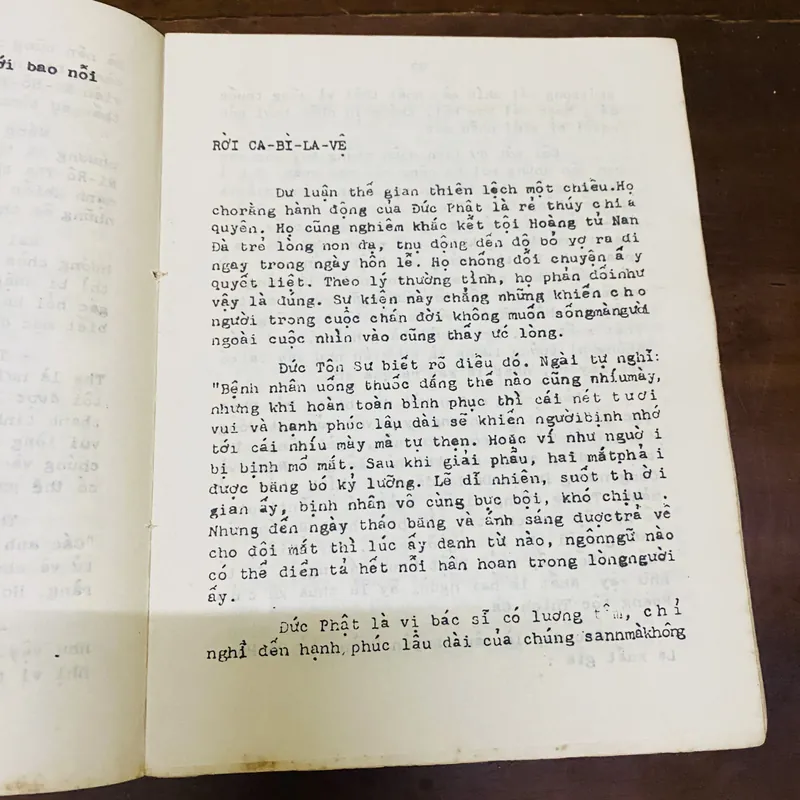 ới bao nỗi
RỜI CA-BÌ-LA-VỆ
Dư luận thế gian thiên lệch một chiều.Họ
chorằng hành động của Đức Phật là rẻ thúy chia
quyên. Họ cũng nghiêm khắc kết tội Hoàng tử Nan
Đà trẻ lòng non dạ, thụ động đến độ bỏ vợ ra đi
ngay trong ngày hôn lễ. Họ chống đối chuyện ấ y
quyết liệt. Theo lý thường tình, họ phản đốinhư
vậy là đúng. Sự kiện này chẳng những khiến c h o
người trong cuộc chán đời không muốn sốngmàngười
ngoài cuộc nhìn vào cũng thấy ức lòng.
Đức Tôn Sư biết rõ điều đó. Ngài tự nghĩ:
"Bệnh nhân uống thuốc đắng thế nào cũng nhíumày,
nhưng khi hoàn toàn bình phục thì cái nét t ươ i
vui và hạnh phúc lâu dài sẽ khiến ngườibịnh nhớ
tới cái nhíu mày mà tự thẹn. Hoặc ví như ngườ i
bị bịnh mổ mắt. Sau khi giải phẫu, hai mắtphả i
được băng bó kỷ lưỡng. Lẽ dĩ nhiên, suốt th ờ i
gian ấy, bịnh nhân vô cùng bực bội, khó chịu .
Nhưng đến ngày tháo băng và ánh sáng đượctrả về
cho đôi mắt thì lúc ấy danh từ nào, ngônngữ nào
có thể diễn tả hết nỗi hân hoan trong lòngngười
ấy.
Đức Phật là vị bác sĩ có lương tâm, c h ỉ
nghĩ đến hạnh phúc lâu dài của chúng sannmàkhông